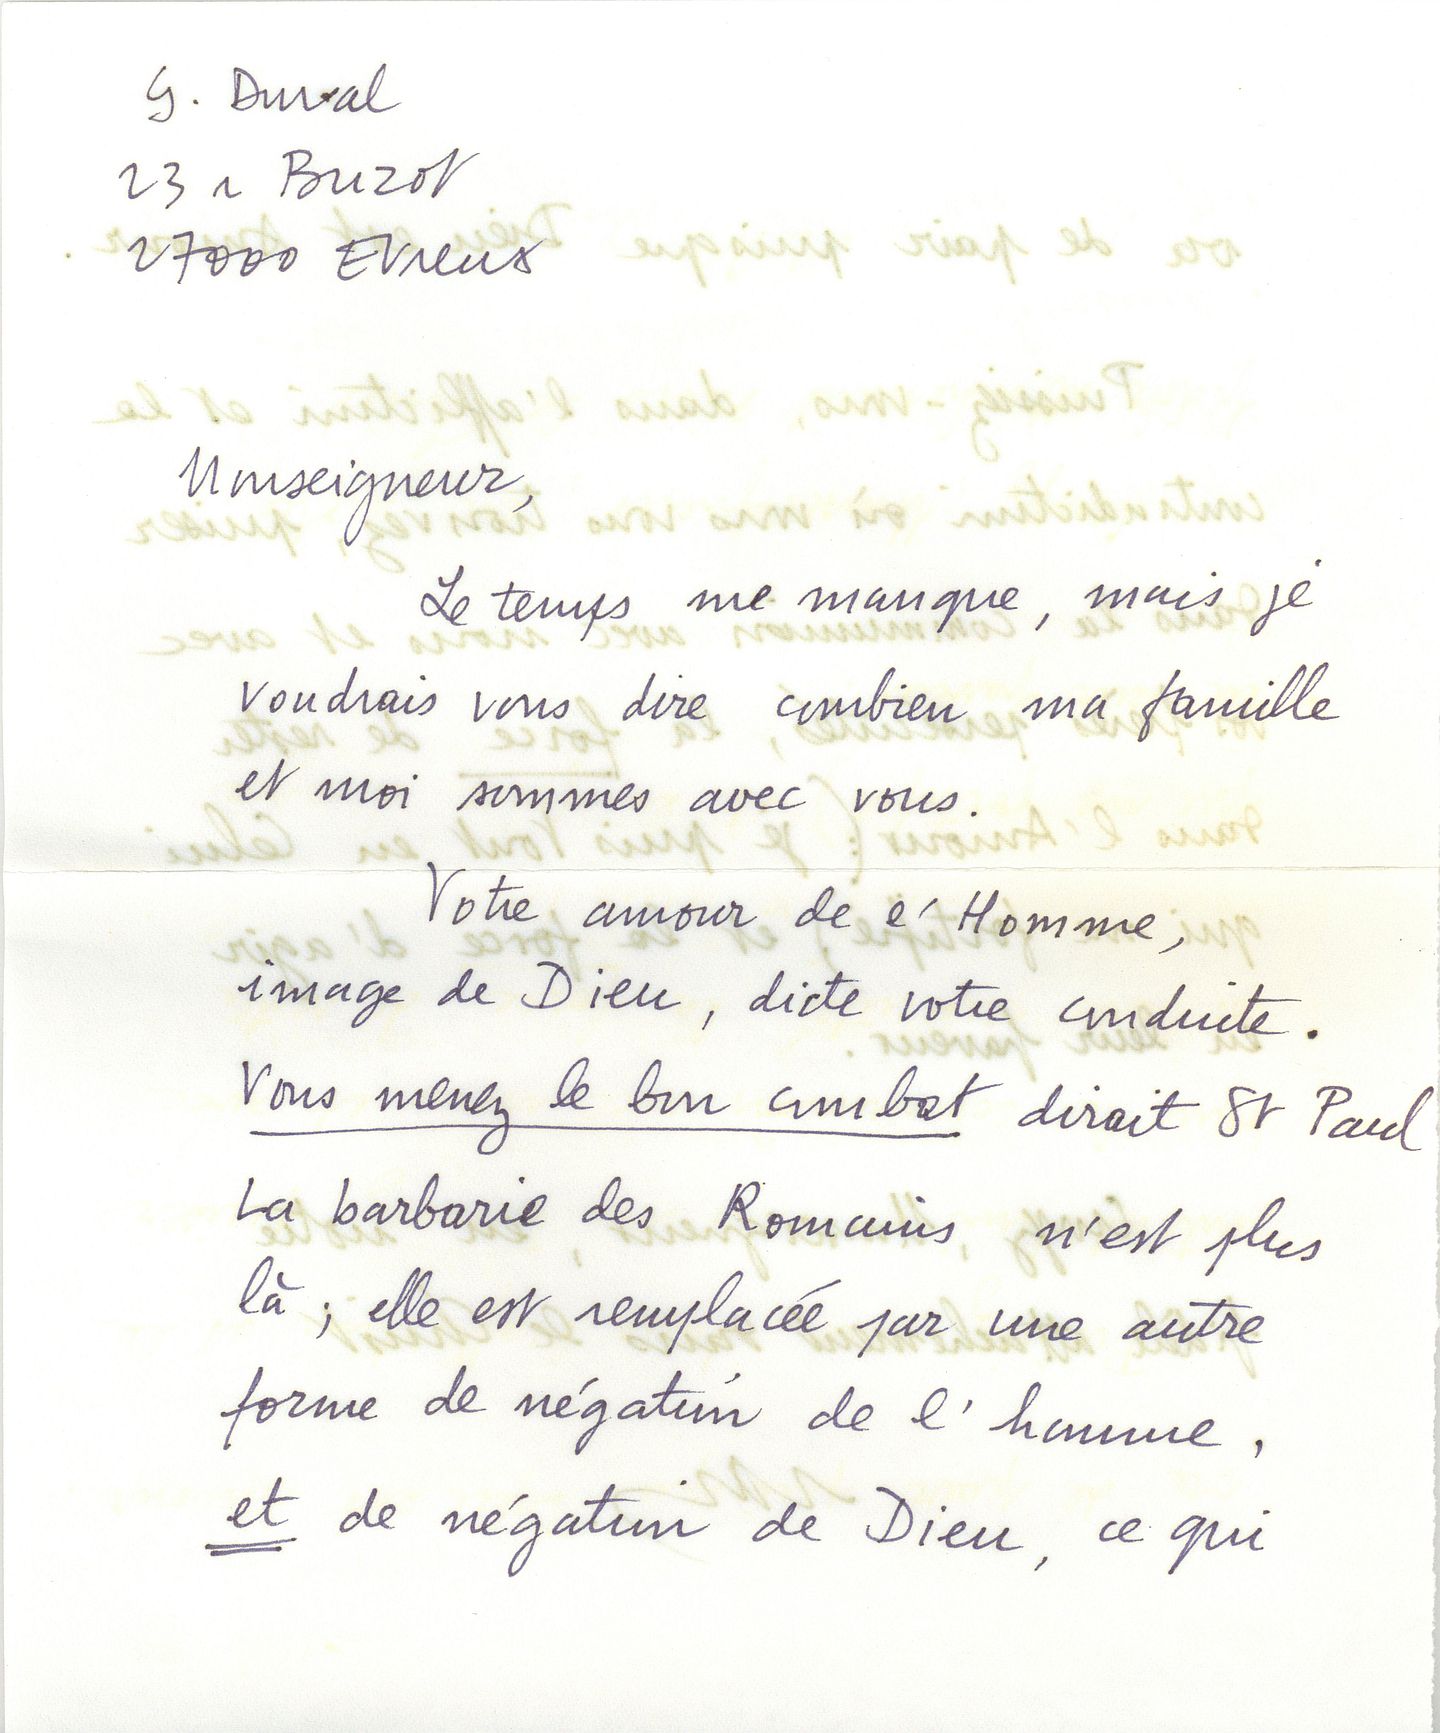 G. Duval
23 r Buzot
27000 Evreux
Monseigneur,
Le temps me manque, mais je
voudrais vous dire combien ma famille
et moi sommes avec vous.
Votre amour de l'Homme,
image de Dieu, dicte votre conduite.
Vous menez le bon combat dirait St Paul
La barbarie des Romains n'est plus
là ; elle est remplacée par une autre
forme de négation de l'homme,
et de négation de Dieu, ce qui